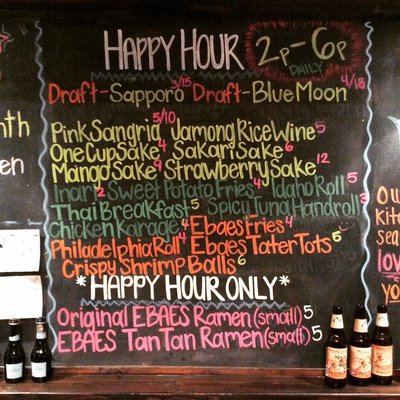 HAPPY HOUR 2P-6P
DAILY
Draft-Sapporo 3/15 Draft-Blue Moon 4/18
Pink Sangria 5/10 Jamong Rice Wine 5
One Cup Sake 4 Sakari Sake 6
Mango Sake 9 Strawberry Sake 12
Inari 2 Sweet Potato Fries 4 Idaho Roll 5
Thai Breakfast 5 Spicy Tuna Handroll 3
Chicken Karage 4 Ebaes Fries 4
Philadelphia Roll 4 Ebaes Tater Tots 5
Crispy Shrimp Balls 6
*HAPPY HOUR ONLY*
Original EBAES Ramen (small) 5
EBAES Tan Tan Ramen (small) 5
nth
en
Ou
Kit
sea
lov
yo